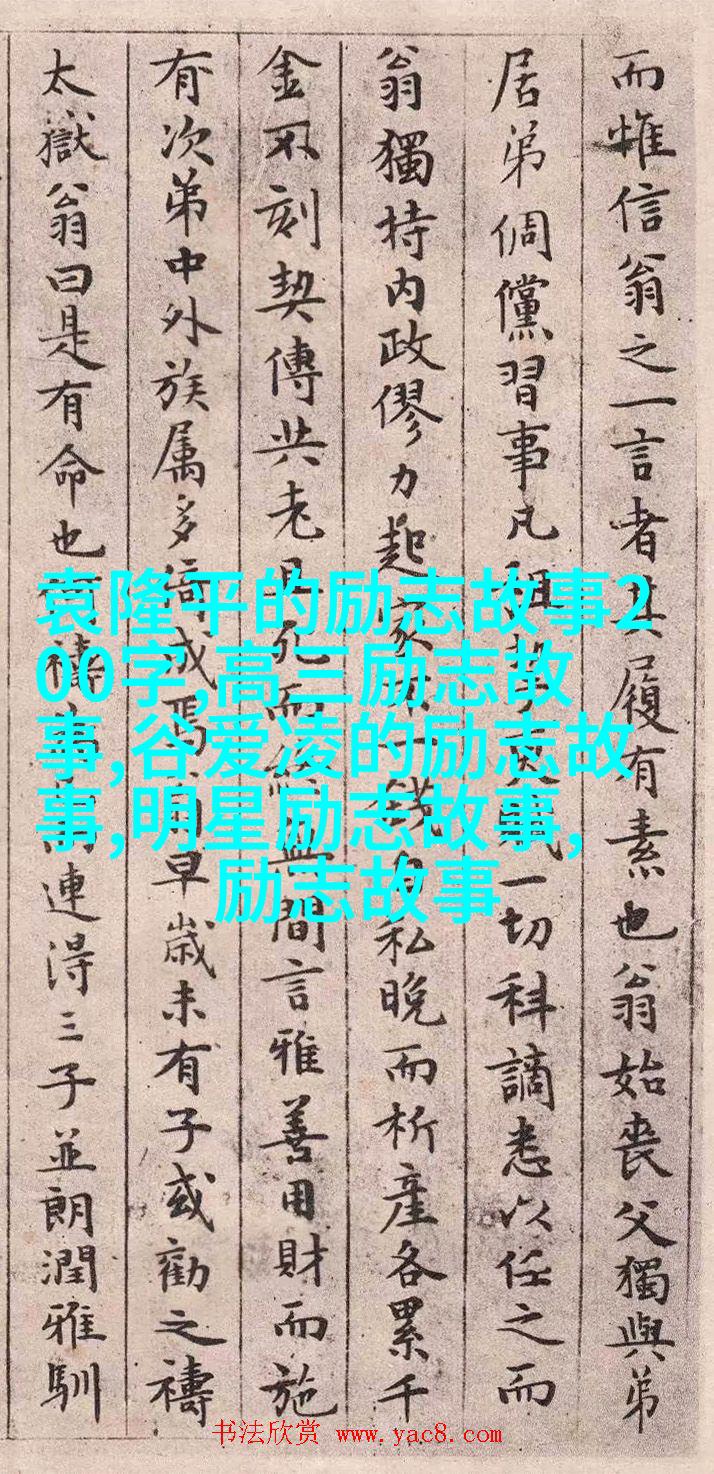 而惟信翁之一言者其履有素也翁始喪父獨與弟
居弟倜儻習事凡租 一切科謫悉以任之而
翁獨持内政僇力起家不一錢自私晚而析產各累千
金不刻契傳共老且死而終無間言雅善用財而施
有次弟中外族属多倚成焉翁早歲未有子或勸之禱
太嶽翁曰是有命也 禱 連得三子並朗潤雅馴
袁隆平的励志故事2
00字,高三励志故
事,谷爱凌的励志故
事,明星励志故事,
励志故事
书法欣赏 www.yac8.com